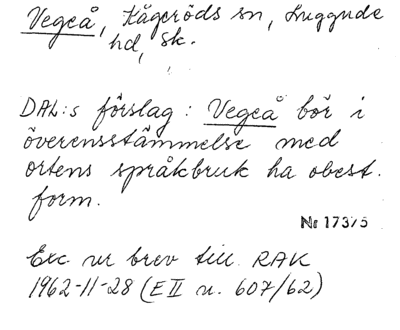 Vegeå, Kågeröds sn, Luggude
hd, Sk.
DAL:s förslag: Vegeå bör i
överensstämmelse med
ortens språkbruk ha obest.
form.
Nr 17375
Exc. ur brev till RAK
1962-11-28 (E II u. 607/62)